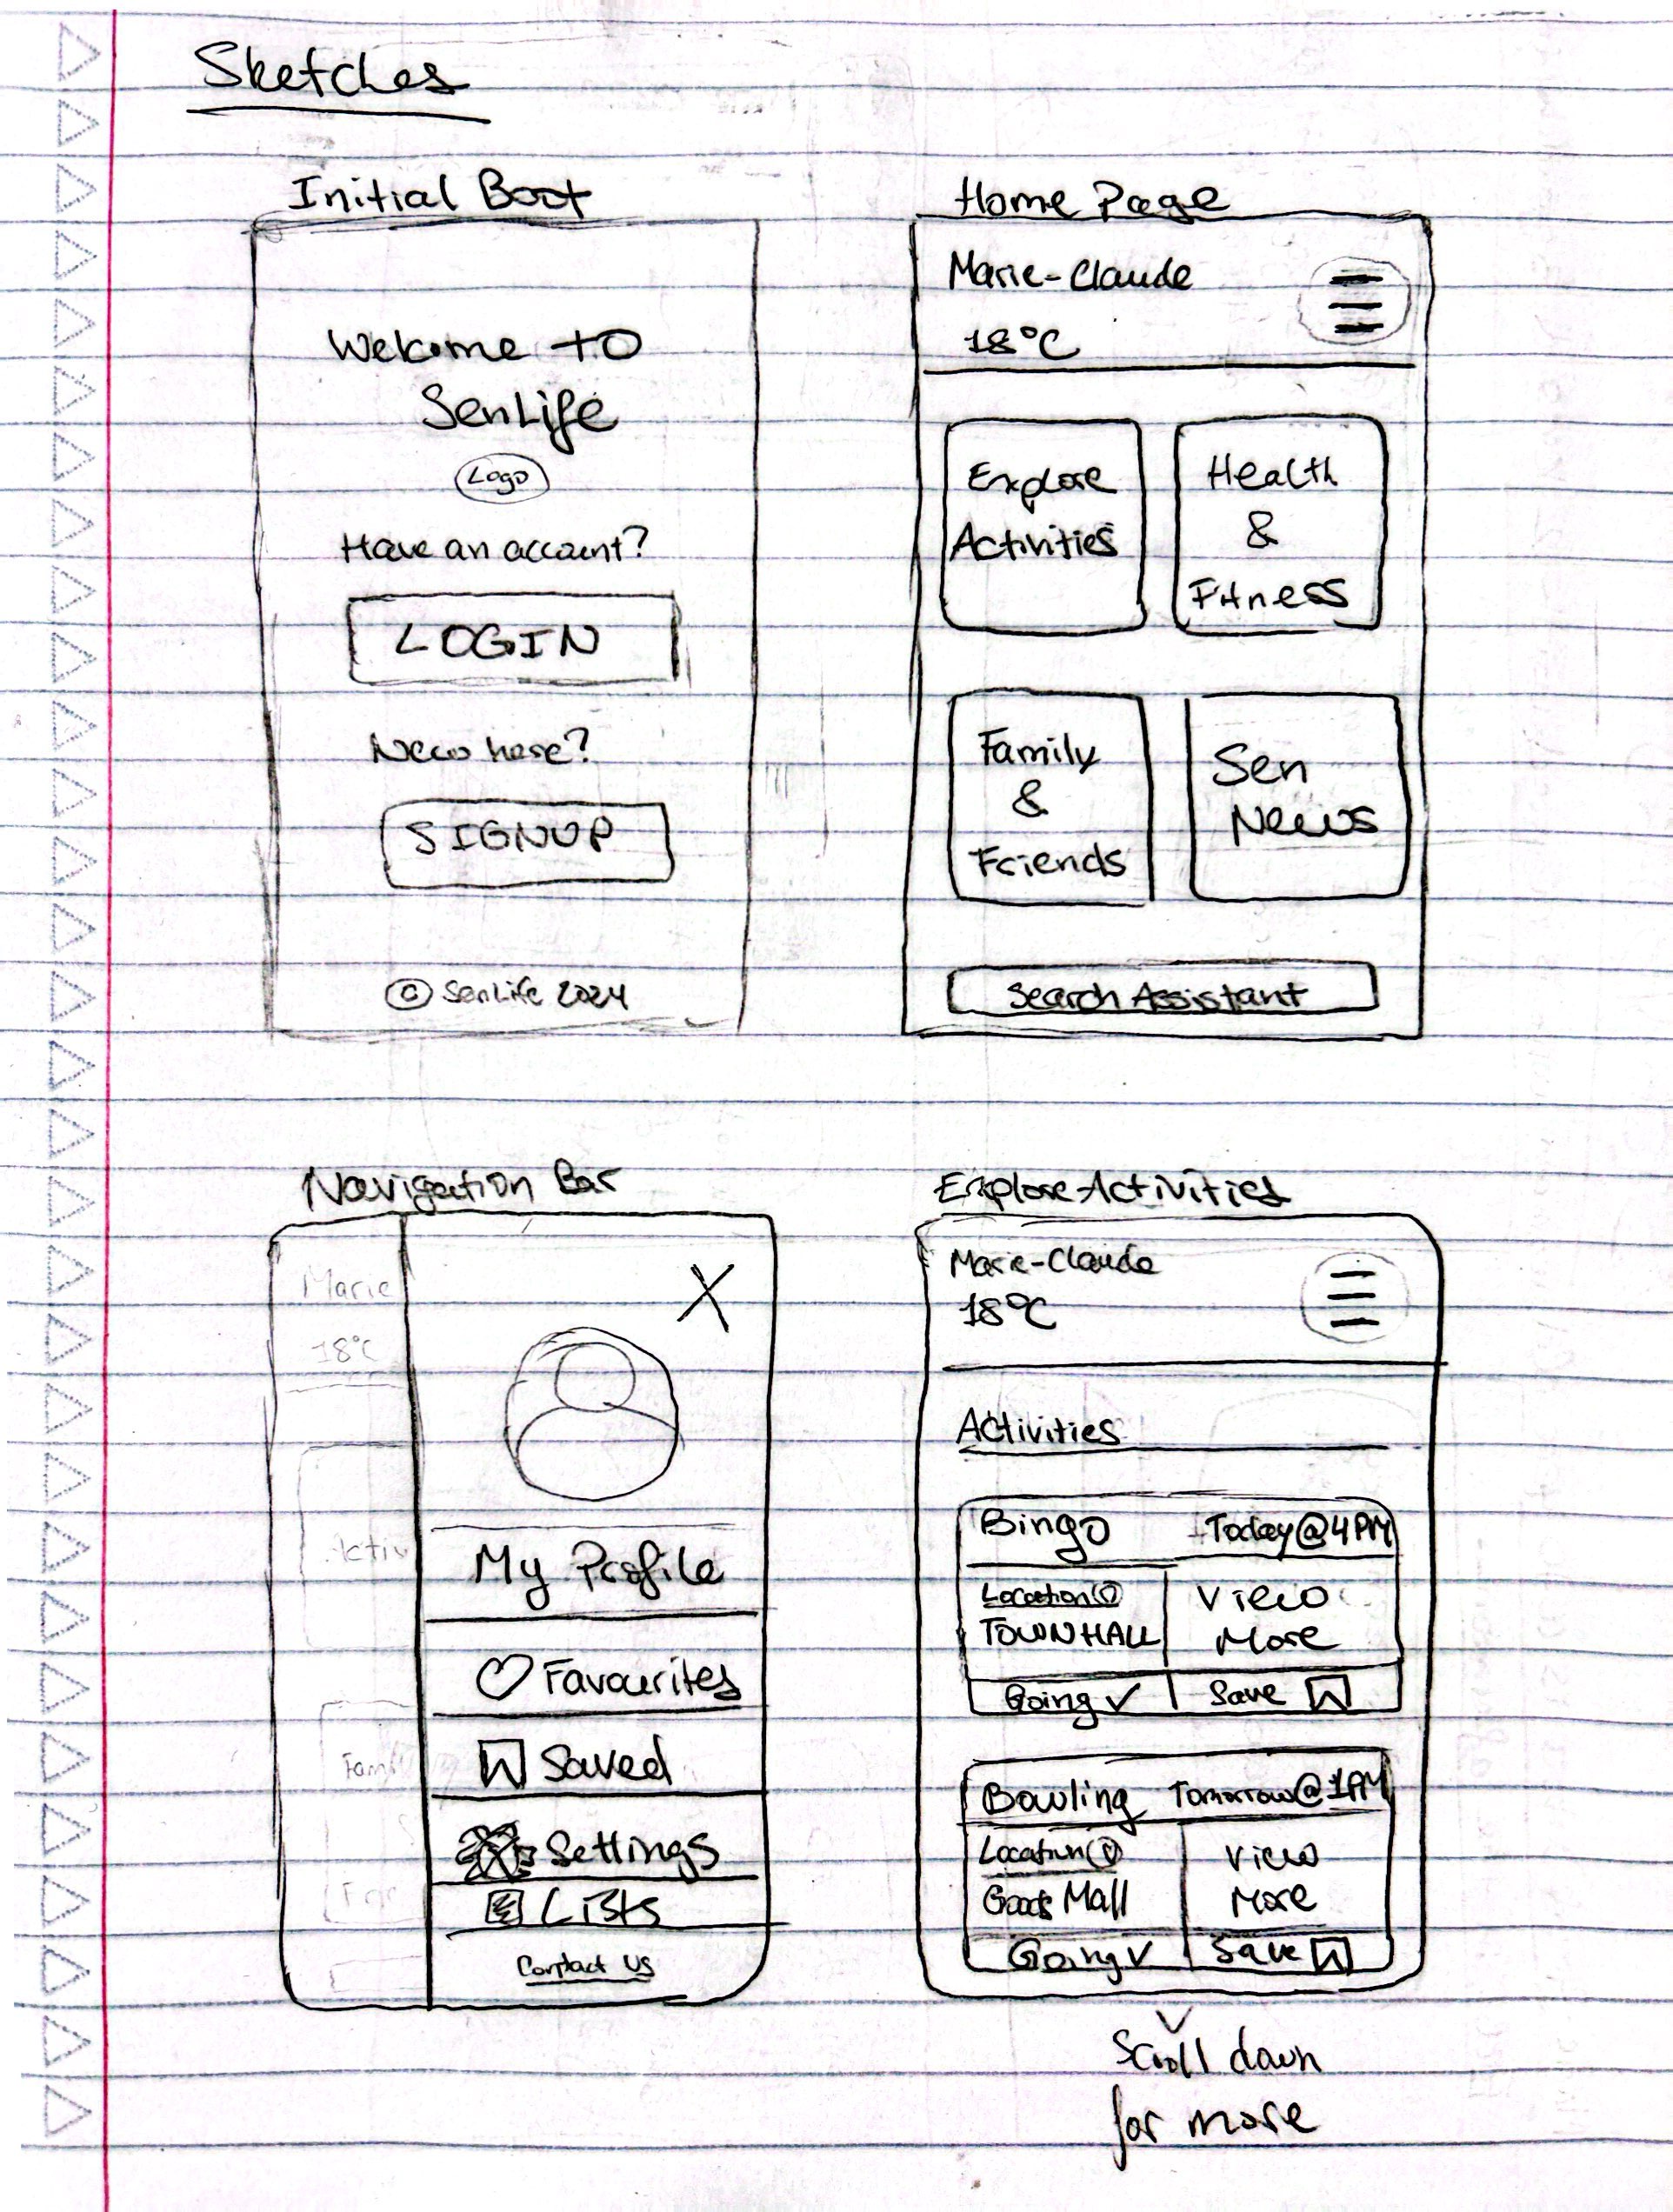 Sketches
Initial Boot
Welcome to
SenLife
Logo
Have an account?
LOGIN
New here?
SIGNUP
© SenLife 2024
Home Page
Marie-Claude
18°C
Explore
Activities
Health
&
Fitness
Family
&
Friends
Sen
News
Search Assistant
Navigation Bar
Marie
18°C
Activ
Fami
X
My Profile
Favourites
Saved
Settings
Lists
Contact Us
Explore Activities
Marie-Claude
18°C
Activities
Bingo Today@4PM
Location
TOWNHALL
View
More
Going ✓ Save
Bowling Tomorrow@1PM
Location
Goods Mall
View
More
Going ✓ Save
Scroll down
for more